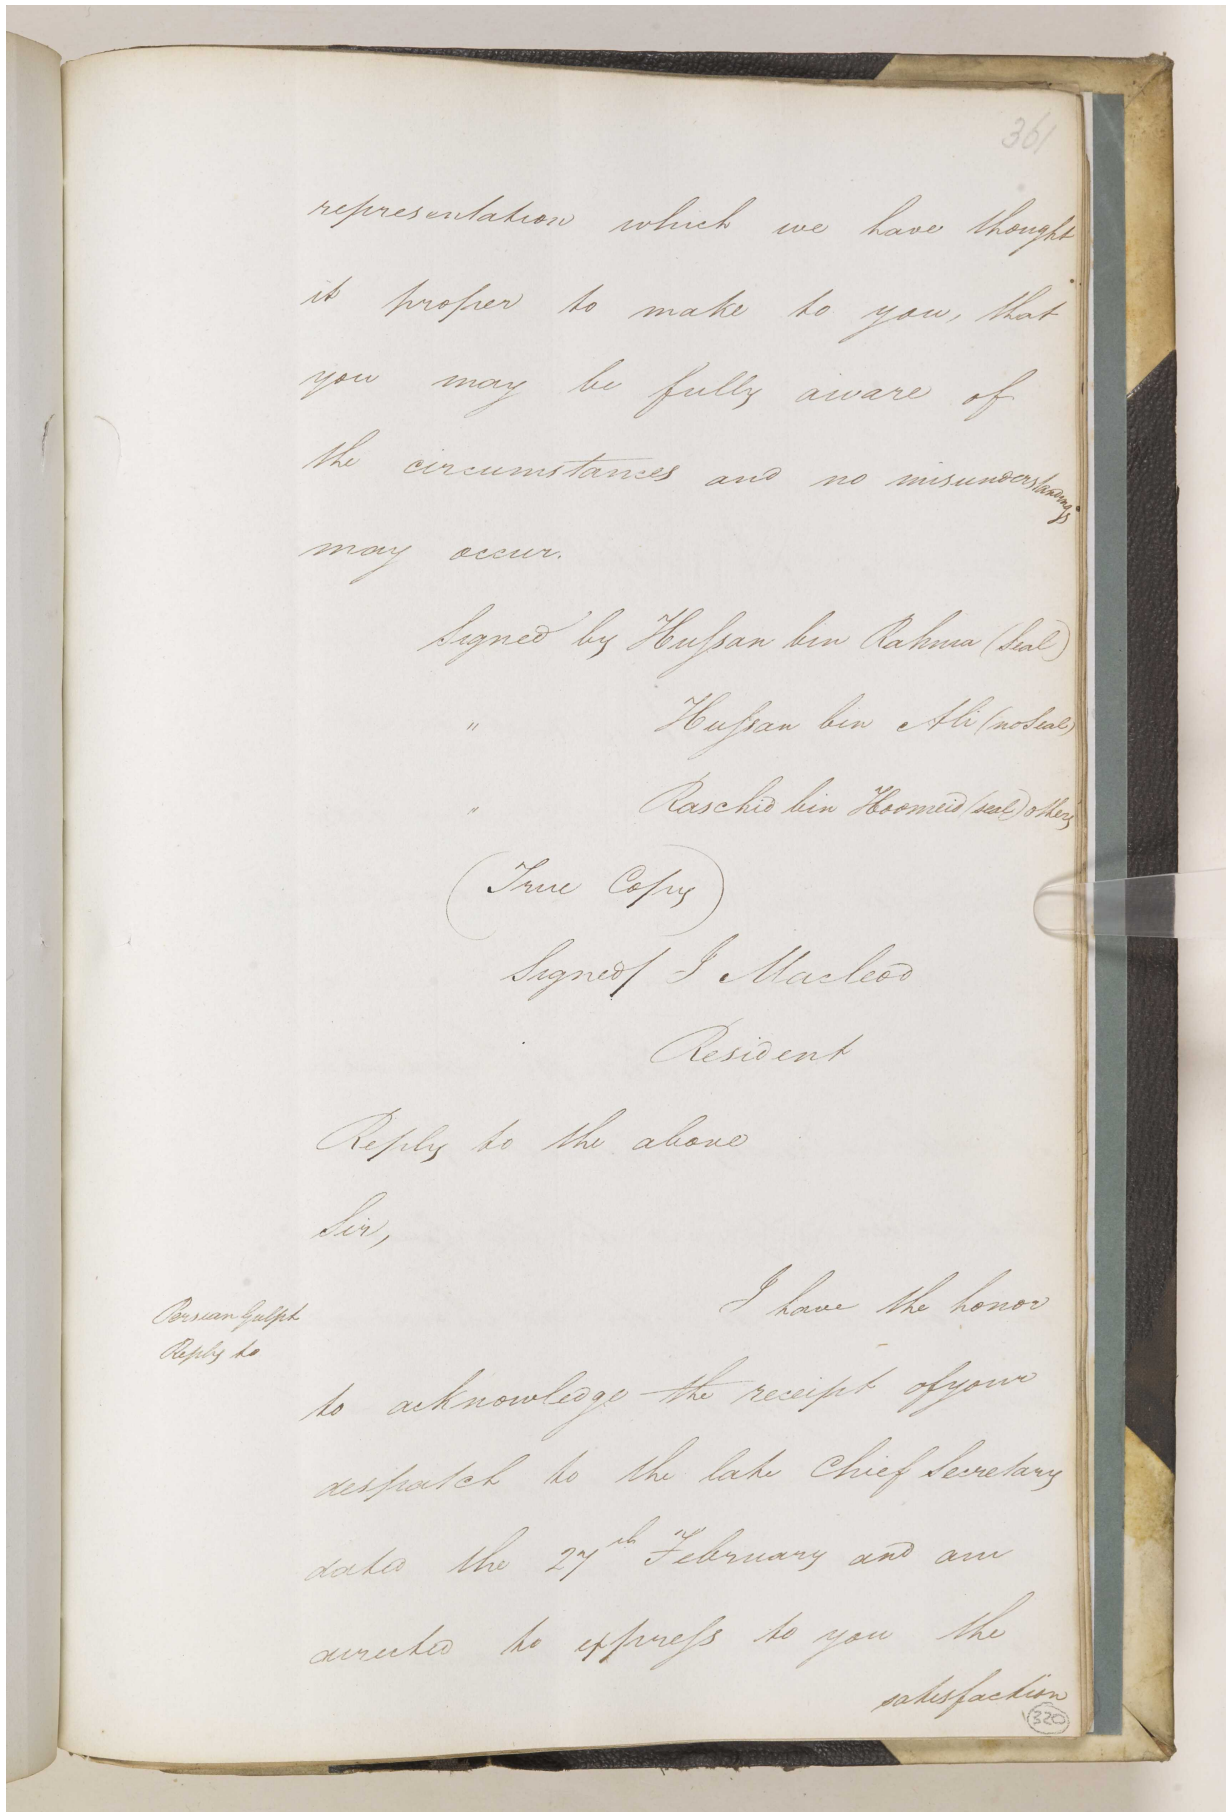 361
representation which we have thought
it proper to make to you, that
you may be fully aware of
the circumstances and no misunderstandings
may occur.
Signed by Hussan bin Rahma (Seal)
" Hussan bin Ali (no Seal)
" Raschid bin Hoomeid (seal) others
(True Copy)
Signed/ J Macleod
Resident
Reply to the above
Sir,
I have the honor
Persian Gulph
Reply to
to acknowledge the receipt of your
despatch to the late Chief Secretary
dated the 27th February and am
directed to express to you the
satisfaction
320